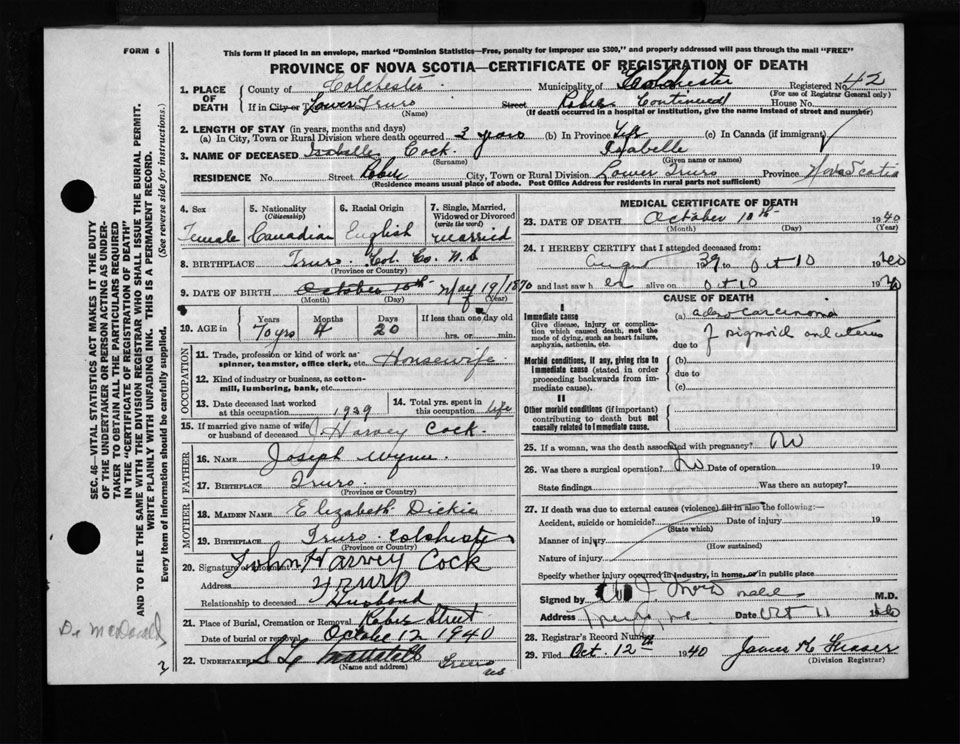 FORM 6
This form if placed in an envelope, marked "Dominion Statistics—Free, penalty for improper use $300," and properly addressed will pass through the mail "FREE"
PROVINCE OF NOVA SCOTIA—CERTIFICATE OF REGISTRATION OF DEATH
1. PLACE OF DEATH
County of Colchester Municipality of Colchester Registered No. 42
(For use of Registrar General only)
If in City or T Lower Truro Street Robie Continued House No.
(Name) (If death occurred in a hospital or institution, give the name instead of street and number)
2. LENGTH OF STAY (in years, months and days)
(a) In City, Town or Rural Division where death occurred 2 years (b) In Province Life (c) In Canada (if immigrant)
3. NAME OF DECEASED Isabelle Cock. Isabelle
(Surname) (Given name or names)
RESIDENCE No. Street Robie City, Town or Rural Division Lower Truro Province Nova Scotia
(Residence means usual place of abode. Post Office Address for residents in rural parts not sufficient)
4. Sex Female
5. Nationality (Citizenship) Canadian
6. Racial Origin English
7. Single, Married, Widowed or Divorced (write the word) married
8. BIRTHPLACE Truro Col. Co. N.S
(Province or Country)
9. DATE OF BIRTH October 10th May 19/1870
(Month) (Day) (Year)
10. AGE in Years 70 yrs Months 4 Days 20 If less than one day old
hrs. or min.
OCCUPATION
11. Trade, profession or kind of work as spinner, teamster, office clerk, etc. Housewife
12. Kind of industry or business, as cotton-mill, lumbering, bank, etc.
13. Date deceased last worked at this occupation 1939 14. Total yrs. spent in this occupation Life
15. If married give name of wife or husband of deceased J. Harvey Cock.
FATHER
16. NAME Joseph Wynn.
17. BIRTHPLACE Truro.
(Province or Country)
MOTHER
18. MAIDEN NAME Elizabeth Dickie
19. BIRTHPLACE Truro Colchester
(Province or Country)
20. Signature of John Harvey Cock
Address Truro
Relationship to deceased Husband
21. Place of Burial, Cremation or Removal Robie Street
Date of burial or removal October 12 1940
22. UNDERTAKER Truro
(Name and address) NS
MEDICAL CERTIFICATE OF DEATH
23. DATE OF DEATH October 10th 1940
(Month) (Day) (Year)
24. I HEREBY CERTIFY that I attended deceased from:
August 39 to Oct 10 1940
and last saw h er alive on Oct 10 1940
CAUSE OF DEATH
I
Immediate cause
Give disease, injury or complication which caused death, not the mode of dying, such as heart failure, asphyxia, asthenia, etc.
(a) adeno carcinoma
due to of sigmoid and uterus
Morbid conditions, if any, giving rise to immediate cause (stated in order proceeding backwards from immediate cause).
(b)
due to
(c)
II
Other morbid conditions (if important) contributing to death but not causally related to immediate cause.
25. If a woman, was the death associated with pregnancy? No
26. Was there a surgical operation? No Date of operation 19
State findings Was there an autopsy?
27. If death was due to external causes (violence) fill in also the following:—
Accident, suicide or homicide? Date of injury 19
(State which)
Manner of injury
(How sustained)
Nature of injury
Specify whether injury occurred in industry, in home, or in public place
Signed by M.D.
Address Date Oct 11 1940
28. Registrar's Record Number
29. Filed Oct. 12th 1940 James
(Division Registrar)
SEC. 46—VITAL STATISTICS ACT MAKES IT THE DUTY
OF THE UNDERTAKER OR PERSON ACTING AS UNDERTAKER TO OBTAIN ALL THE PARTICULARS REQUIRED
IN THE "CERTIFICATE OF REGISTRATION OF DEATH"
AND TO FILE THE SAME WITH THE DIVISION REGISTRAR WHO SHALL ISSUE THE BURIAL PERMIT.
WRITE PLAINLY WITH UNFADING INK. THIS IS A PERMANENT RECORD.
Every item of information should be carefully supplied. (See reverse side for instructions.)
Dr McDonald